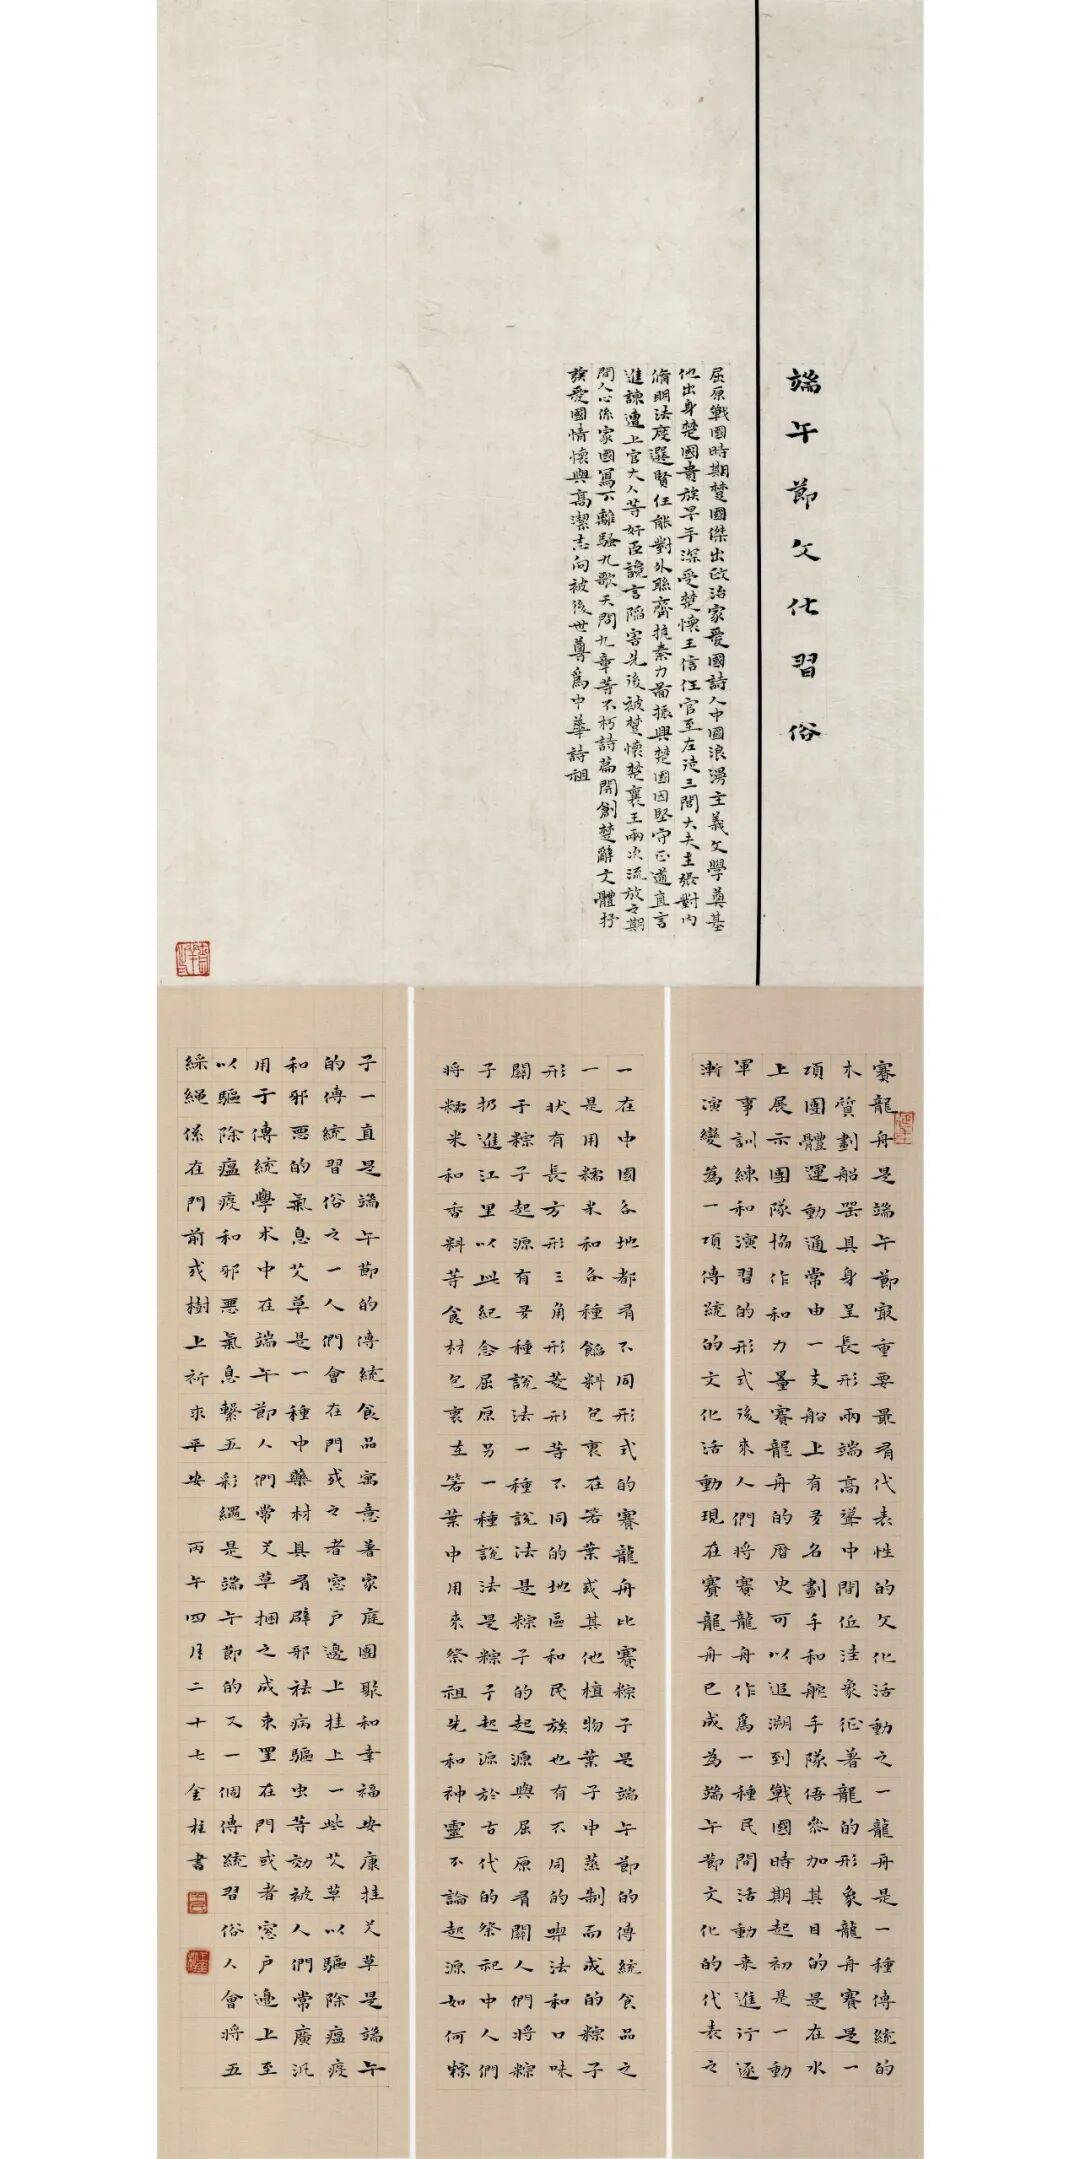 端午節文化習俗
屈原戰國時期楚國傑出政治家愛國詩人中國浪漫主義文學奠基
他出身楚國貴族早年深受楚懷王信任官至左徒三閭大夫主張對内
脩明法度選賢任能對外聯齊抗秦力圖振興楚國因堅守正道直言
進諫遭上官大人等奸臣讒言陷害先後被楚懷楚襄王兩次流放之期
間人心係家國寫下離騷九歌天問九章等不朽詩篇開創楚辭文體抒
族愛國情懷與高潔志向被後世尊爲中華詩祖
賽龍舟是端午節最重要最有代表性的文化活動之一龍舟是一種傳統的
木質劃船器具身呈長形兩端高聳中間低洼象征著龍的形象龍舟賽是一
項團體運動通常由一支船上有多名劃手和舵手隊伍參加其目的是在水
上展示團隊協作和力量賽龍舟的曆史可以追溯到戰國時期起初是一動
軍事訓練和演習的形式後來人們將賽龍舟作爲一種民間活動來進行逐
漸演變爲一項傳統的文化活動現在賽龍舟已成為端午節文化的代表之
一在中國各地都有不同形式的賽龍舟比賽粽子是端午節的傳統食品之
一是用糯米和各種餡料包裹在箬葉或其他植物葉子中蒸制而成的粽子
形状有長方形三角形菱形等不同的地區和民族也有不同的法和口味
關于粽子起源有多種說法一種說法是粽子的起源與屈原有關人們將粽
子扔進江里以此紀念屈原另一種說法是粽子起源於古代的祭祀中人們
將糯米和香料等食材包裹在箬葉中用來祭祖先和神靈不論起源如何粽
子一直是端午節的傳統食品寓意著家庭團聚和幸福安康挂艾草是端午
的傳統習俗之一人們會在門或之者窓戶邊上挂上一些艾草以驅除瘟疫
和邪惡的氣息艾草是一種中藥材具有辟邪祛病驅虫等効被人們常廣汎
用于傳統學术中在端午節人們常艾草捆之成束里在門或者窓戶邊上至
以驅除瘟疫和邪惡氣息繫五彩繩是端午節的又一個傳統習俗人會將五
綵繩係在門前或樹上祈求平安 丙午四月二十七金柱書